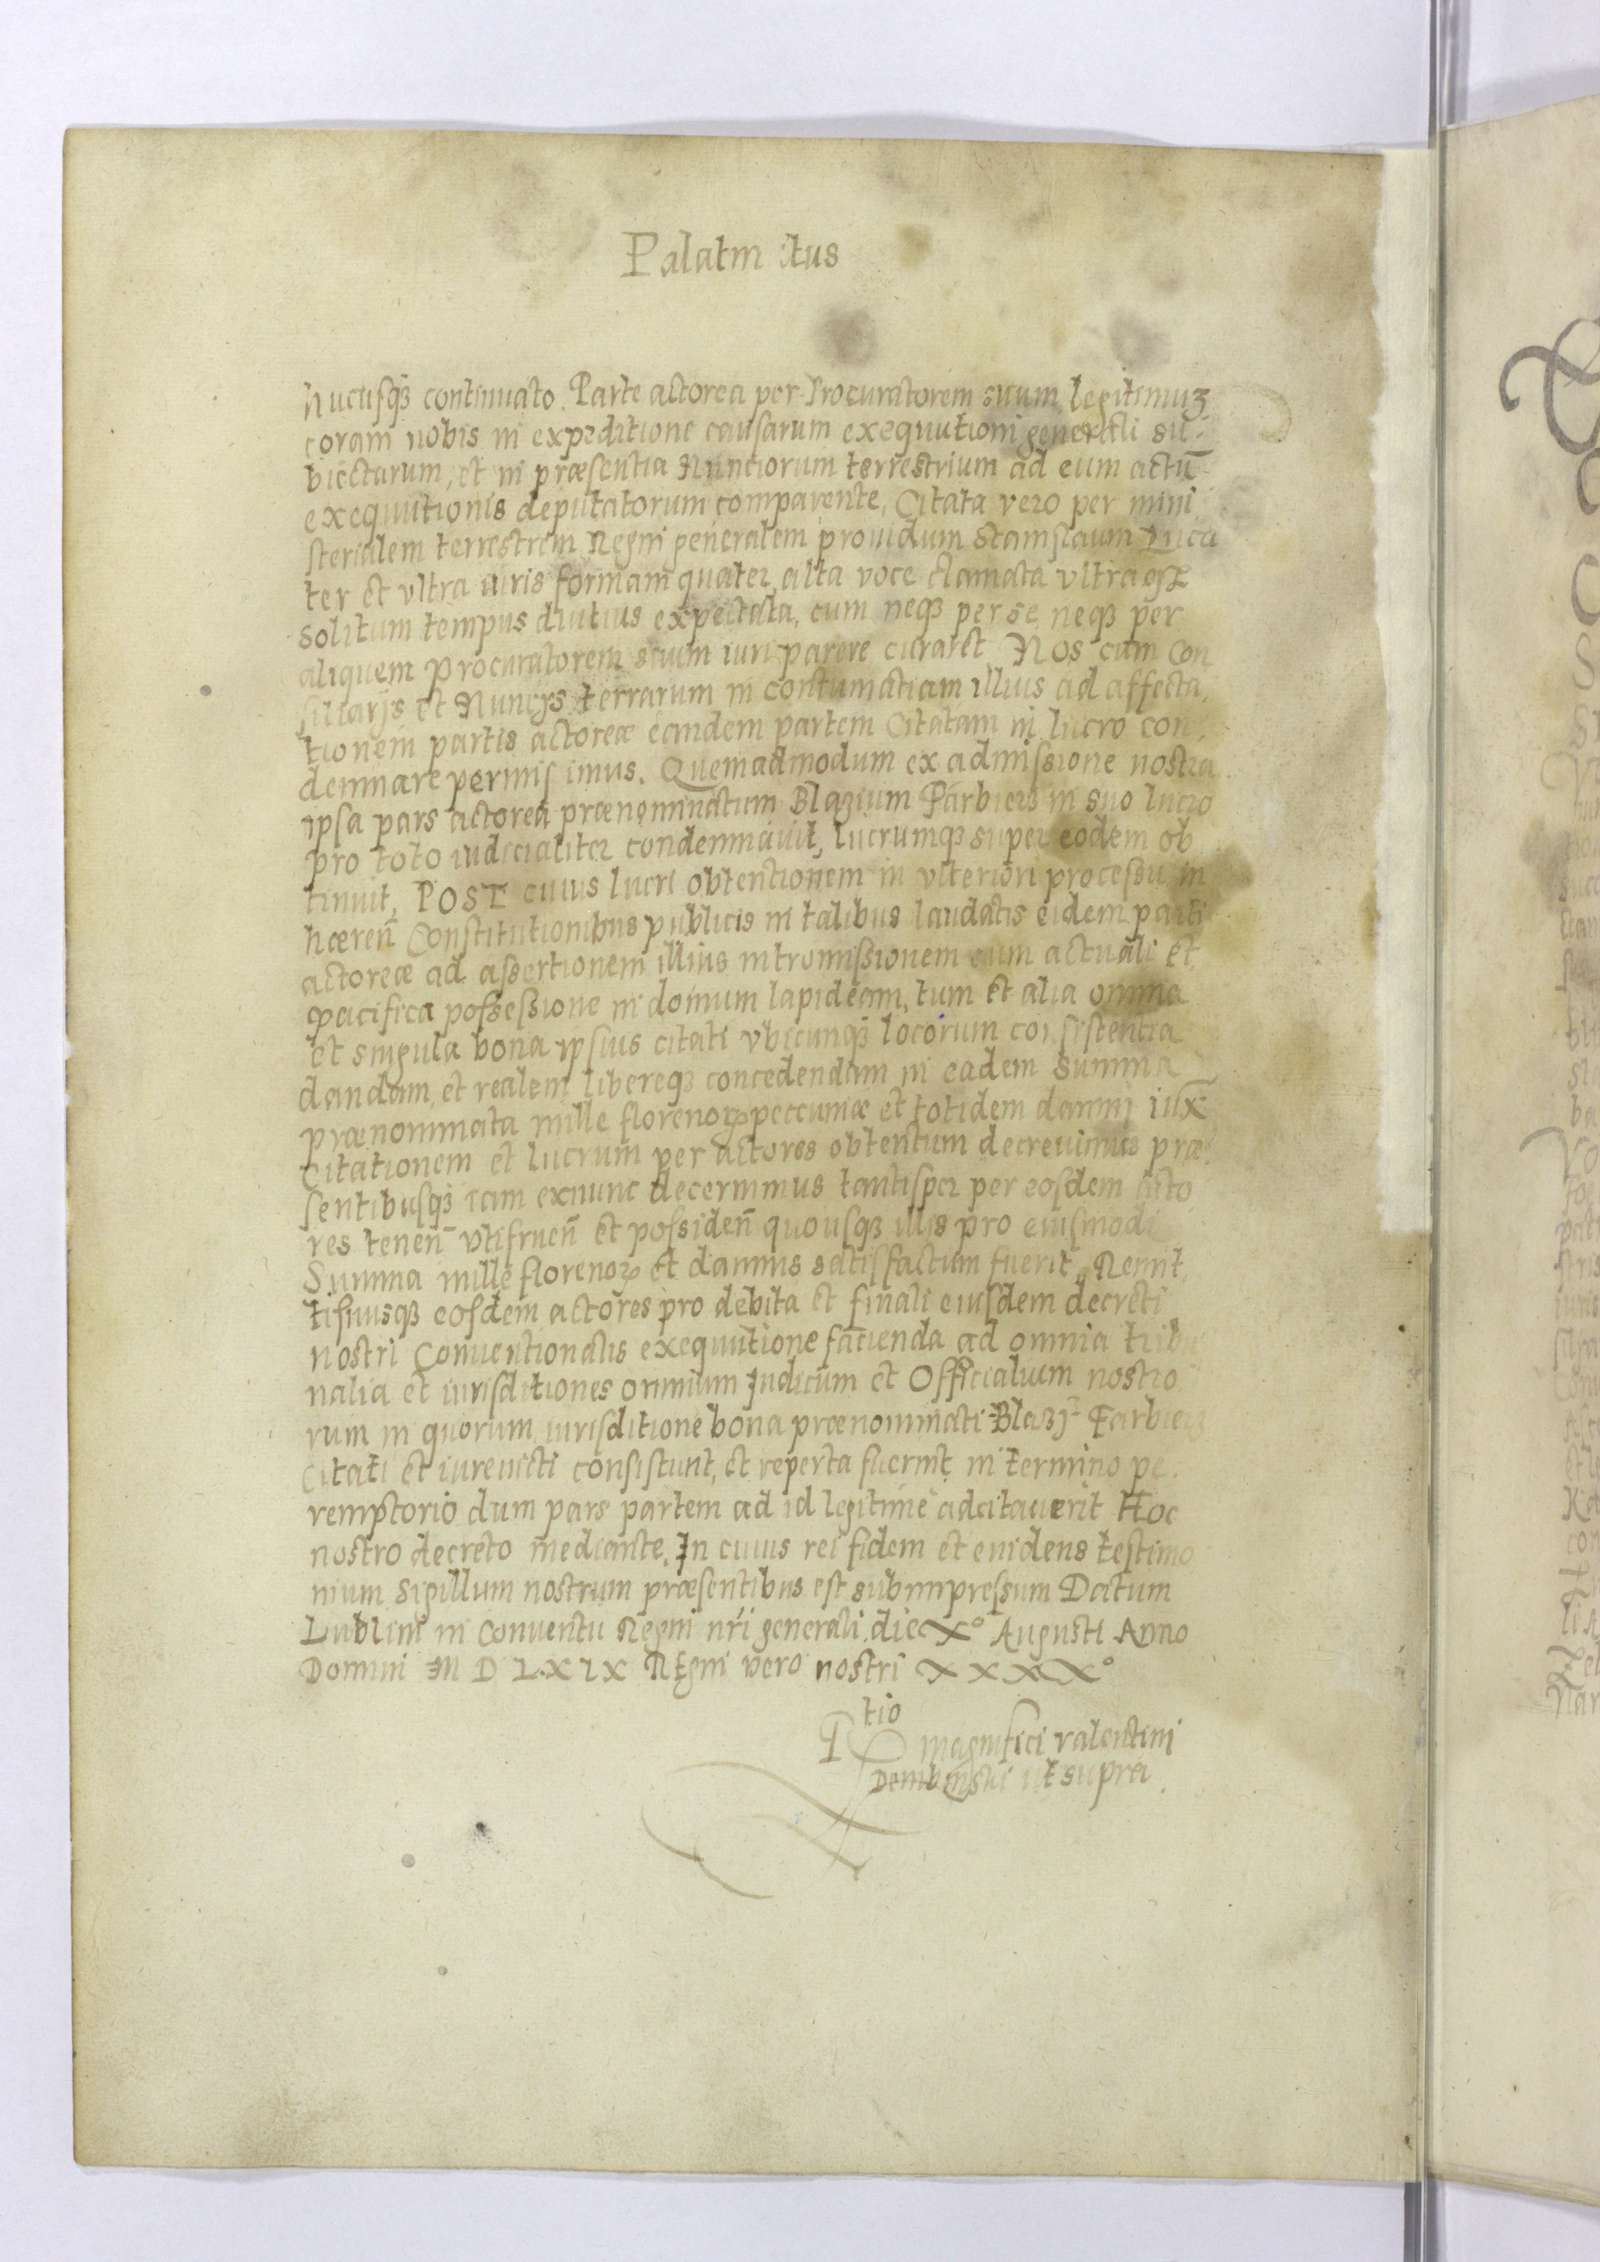 Palatin itus
hucusq₃ continuato. Parte actorea per Procuratorem suum legitimuʒ
coram nobis in expeditione causarum exequutioni generali su-
biectarum, et in præsentia Nunciorum terrestrium ad eum actū
exequutionis deputatorum comparente, Citata vero per mini
sterialem terrestrem Regni generalem prouidum Stanislaum
ter et vltra iuris formam quater alta voce clamata vltraq₃
solitum tempus diutius expectata, cum neq₃ per se neq₃ per
aliquem Procuratorem suum iuri parere curaret, Nos cum Con
siliarijs et Nuncijs terrarum in contumatiam illius ad affecta,
tionem partis actoreæ eandem partem Citatam in lucro con,
demnare permisimus. Quemadmodum ex admissione nostra
ipsa pars actorea prænominatum Blazium Farbierz in suo lucro
pro toto iudicialiter condemnauit, lucrumq₃ super eodem ob
tinuit, POST cuius lucri obtentionem in vlteriori processu in
hæreñ Constitutionibus publicis in talibus laudatis eidem parti
actoreæ ad assertionem illius intromissionem cum actuali et
pacifica possessione in domum lapideam, tum et alia omnia
et singula bona ipsius citati vbicunq₃ locorum consistentia
dandam, et realem libereq₃ concedendam in eadem summa
prænominata mille florenoꝝ peccumæ et totidem damni iux̄
Citationem et lucrum per actores obtentum decreuimus præ
sentibusq₃ iam exnunc decernimus tantisper per eosdem acto
res teneñ vtifrueñ et possideñ quousq₃ illis pro eiusmodi
Summa mille florenoꝝ et damnis satisfactum fuerit, Remit,
tisimusq₃ eosdem actores pro debita et finali eiusdem decreti
nostri Conuentionalis exequutione facienda ad omnia tribu
nalia et iurisditiones omnium Iudicum et Officialium nostro
rum in quorum iurisditione bona prænominati Blazÿ Farbierz
Citati et iureuicti consistunt, et reperta fuerint in termino pe.
remptorio dum pars partem ad id legitime adcitauerit Hoc
nostro decreto mediante, In cuius rei fidem et euidens testimo
nium Sigillum nostrum præsentibus est subimpressum Datum
Lublini in Conuentu Regni nr̄i generali die Xº Augusti Anno
Domini M D LXIX Regni vero nostri XXXXº
tio
magnifici Valentini
Dembinskii ut supra